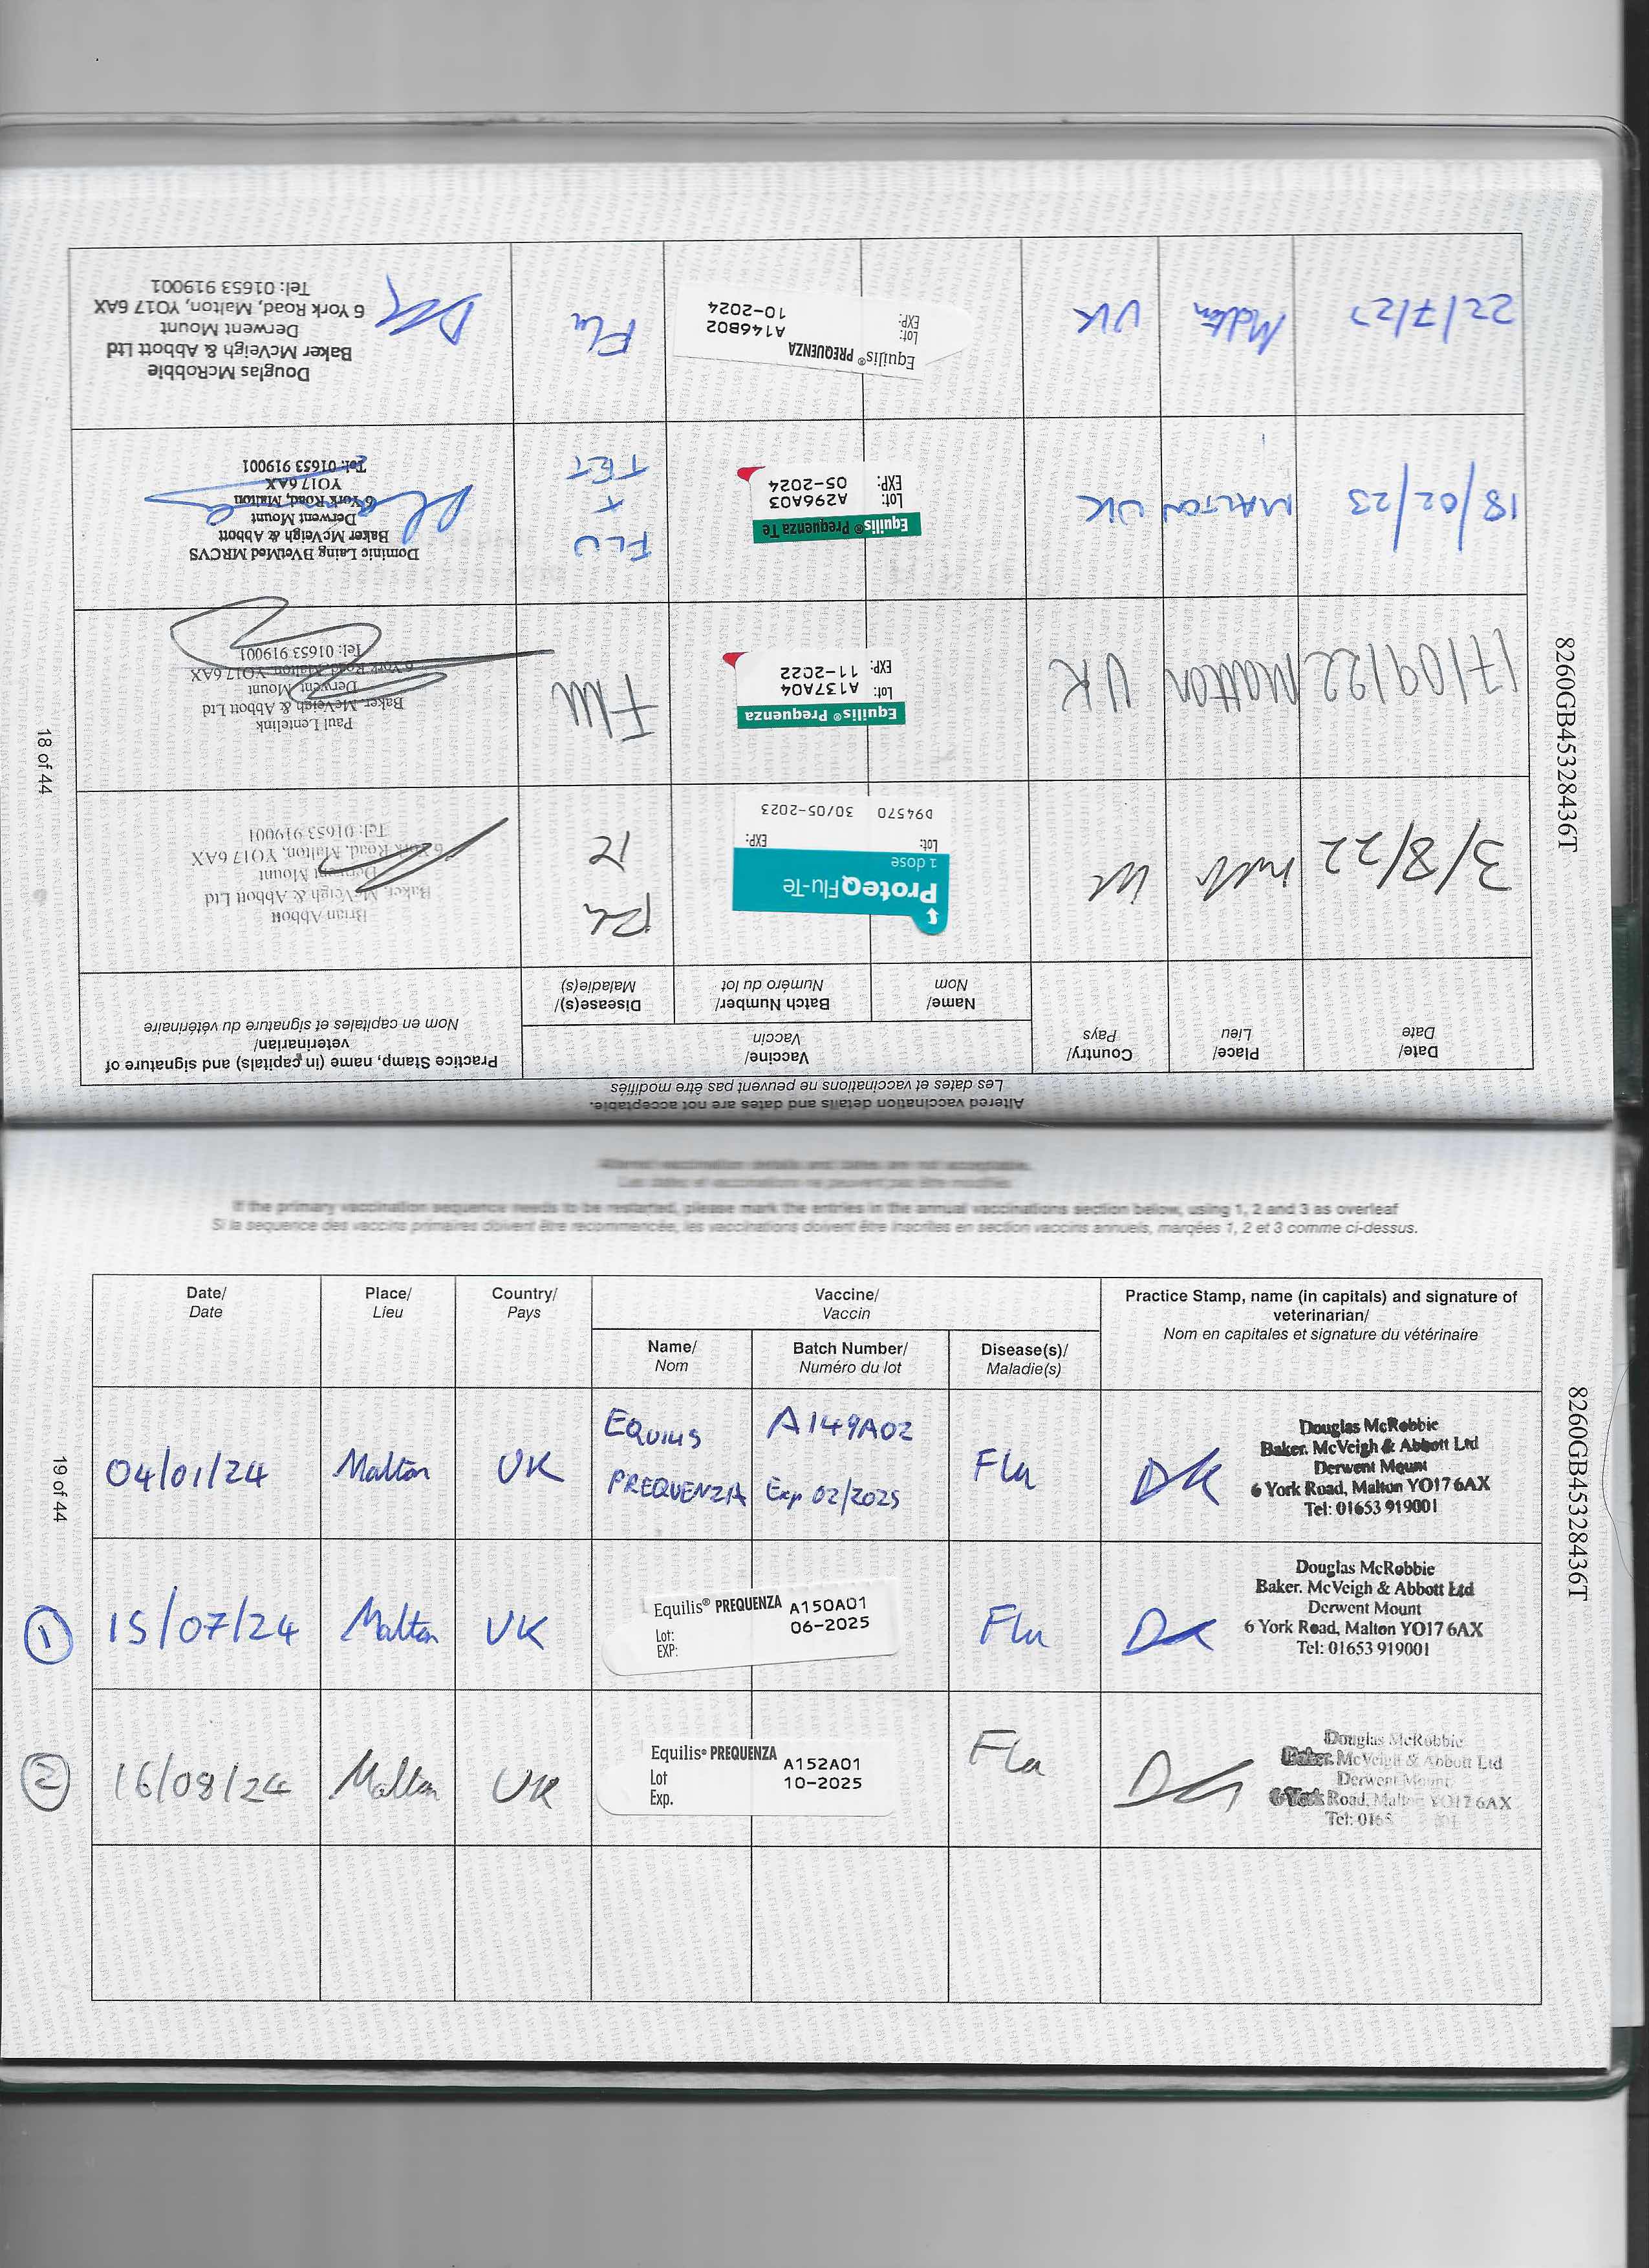 Altered vaccination details and dates are not acceptable.
Les dates et vaccinations ne peuvent pas être modifiés
Date/
Date
Place/
Lieu
Country/
Pays
Vaccine/
Vaccin
Name/
Nom
Batch Number/
Numéro du lot
Disease(s)/
Maladie(s)
Practice Stamp, name (in capitals) and signature of
veterinarian/
Nom en capitales et signature du vétérinaire
3/8/22
UK
ProteqFlu-Te
1 dose
Lot:
EXP:
D94570 30/05-2023
Brian Abbott
Baker, McVeigh & Abbott Ltd
Derwent Mount
6 York Road, Malton, YO17 6AX
Tel: 01653 919001
17/09/22
Malton
UK
Equilis® Prequenza
Lot: A137A04
EXP: 11-2022
Flu
Paul Lentelink
Baker, McVeigh & Abbott Ltd
Derwent Mount
6 York Road, Malton, YO17 6AX
Tel: 01653 919001
18/02/23
MALTON
UK
Equilis® Prequenza Te
Lot: A296A03
EXP: 05-2024
FLU
+
TET
Dominic Laing BVetMed MRCVS
Baker McVeigh & Abbott
Derwent Mount
6 York Road, Malton
YO17 6AX
Tel: 01653 919001
22/7/23
Malton
UK
Equilis® PREQUENZA
Lot: A146B02
EXP: 10-2024
Flu
Douglas McRobbie
Baker McVeigh & Abbott Ltd
Derwent Mount
6 York Road, Malton, YO17 6AX
Tel: 01653 919001
18 of 44
8260GB45328436T
Altered vaccination details and dates are not acceptable.
Les dates et vaccinations ne peuvent pas être modifiés
If the primary vaccination sequence needs to be restarted, please mark the entries in the annual vaccinations section below, using 1, 2 and 3 as overleaf
Si la sequence des vaccins primaires doivent être recommencée, les vaccinations doivent être inscrites en section vaccins annuels, marqées 1, 2 et 3 comme ci-dessus.
Date/
Date
Place/
Lieu
Country/
Pays
Vaccine/
Vaccin
Name/
Nom
Batch Number/
Numéro du lot
Disease(s)/
Maladie(s)
Practice Stamp, name (in capitals) and signature of
veterinarian/
Nom en capitales et signature du vétérinaire
04/01/24
Malton
UK
EQUILIS
PREQUENZA
A149A02
Exp 02/2025
Flu
Douglas McRobbie
Baker. McVeigh & Abbott Ltd
Derwent Mount
6 York Road, Malton YO17 6AX
Tel: 01653 919001
1
15/07/24
Malton
UK
Equilis® PREQUENZA A150A01
Lot: 06-2025
EXP:
Flu
Douglas McRobbie
Baker. McVeigh & Abbott Ltd
Derwent Mount
6 York Road, Malton YO17 6AX
Tel: 01653 919001
2
16/08/24
Malton
UK
Equilis® PREQUENZA A152A01
Lot 10-2025
Exp.
Flu
Douglas McRobbie
Baker. McVeigh & Abbott Ltd
Derwent Mount
6 York Road, Malton YO17 6AX
Tel: 0165 001
19 of 44
8260GB45328436T